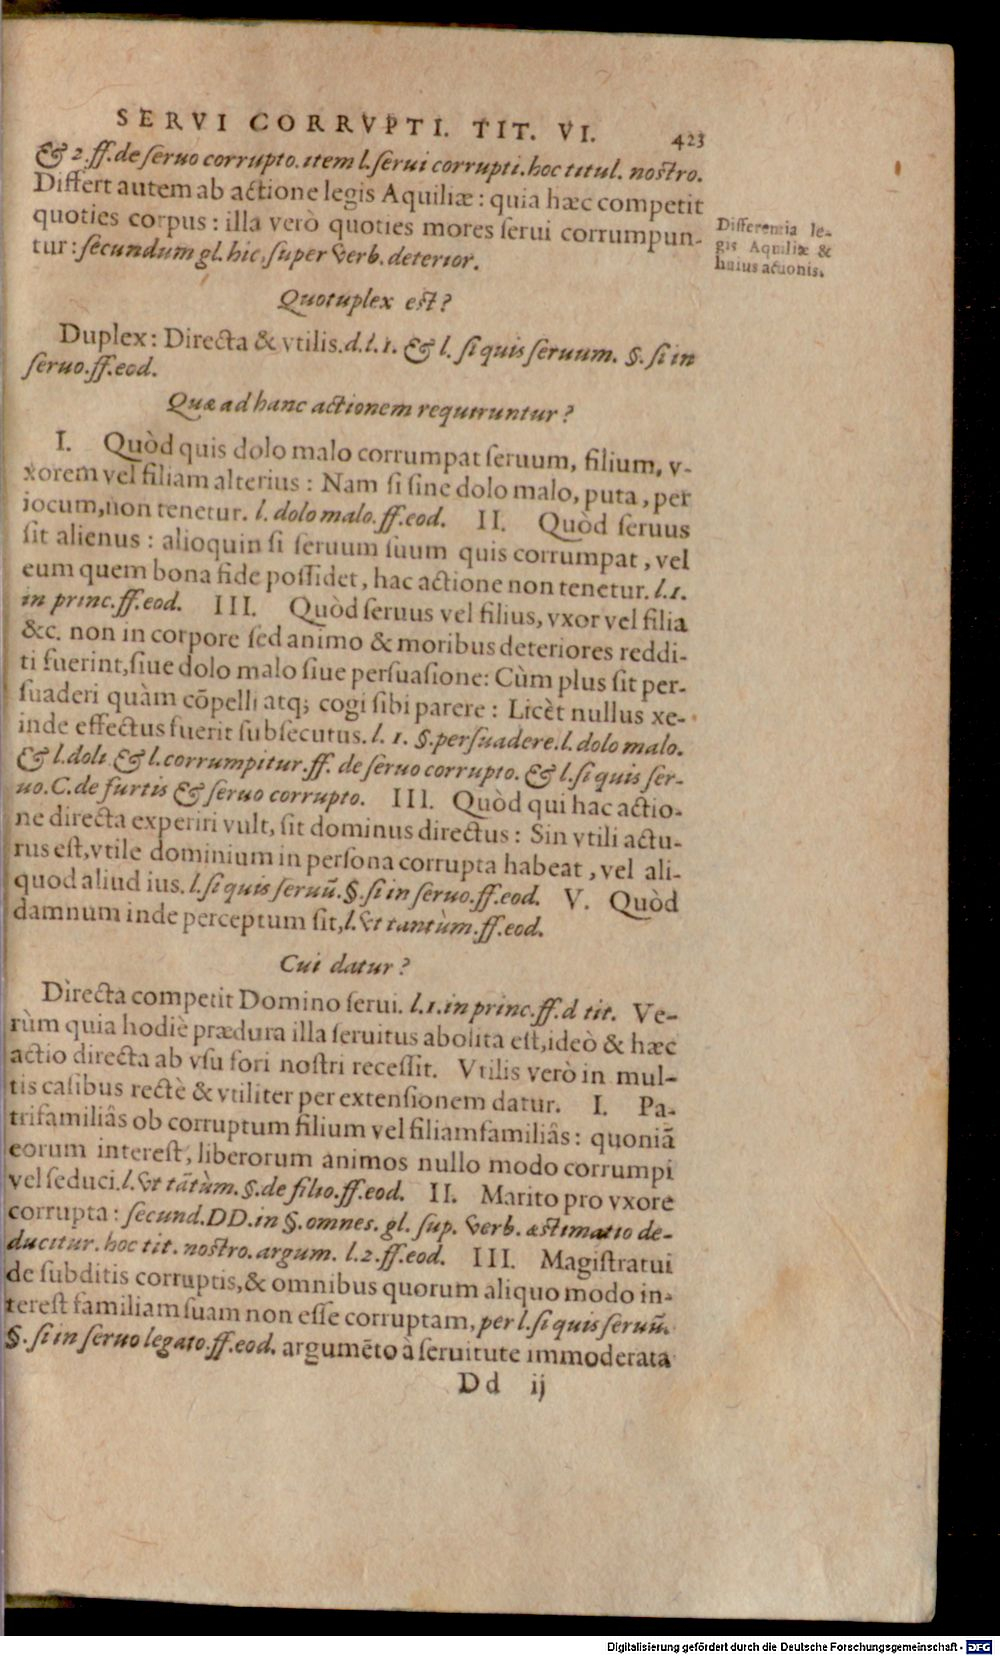 SERVI CORRVPTI. TIT. VI. 423
& 2. ff. de seruo corrupto. item l. serui corrupti. hoc titul. nostro.
Differt autem ab actione legis Aquiliæ: quia hæc competit
quoties corpus: illa verò quoties mores serui corrumpun-
tur: secundum gl. hic, super verb. deterior.
Differentia le-
gis Aquiliæ &
huius actionis.
Quotuplex est?
Duplex: Directa & vtilis. d. l. 1. & l. si quis seruum. §. si in
seruo. ff. eod.
Quæ ad hanc actionem requiruntur?
I. Quòd quis dolo malo corrumpat seruum, filium, v-
xorem vel filiam alterius: Nam si sine dolo malo, puta, per
iocum, non tenetur. l. dolo malo. ff. eod. II. Quòd seruus
sit alienus: alioquin si seruum suum quis corrumpat, vel
eum quem bona fide possidet, hac actione non tenetur. l. 1.
in princ. ff. eod. III. Quòd seruus vel filius, vxor vel filia
&c. non in corpore sed animo & moribus deteriores reddi-
ti fuerint, siue dolo malo siue persuasione: Cùm plus sit per-
suaderi quàm cõpelli atq; cogi sibi parere: Licèt nullus xe-
inde effectus fuerit subsecutus. l. 1. §. persuadere. l. dolo malo.
& l. doli & l. corrumpitur. ff. de seruo corrupto. & l. si quis ser-
uo. C. de furtis & seruo corrupto. III. Quòd qui hac actio-
ne directa experiri vult, sit dominus directus: Sin vtili actu-
rus est, vtile dominium in persona corrupta habeat, vel ali-
quod aliud ius. l. si quis seruũ. §. si in seruo. ff. eod. V. Quòd
damnum inde perceptum sit, l. vt tantùm. ff. eod.
Cui datur?
Directa competit Domino serui. l. 1. in princ. ff. d tit. Ve-
rùm quia hodiè prædura illa seruitus abolita est, ideò & hæc
actio directa ab vsu fori nostri recessit. Vtilis verò in mul-
tis casibus rectè & vtiliter per extensionem datur. I. Pa-
trifamiliâs ob corruptum filium vel filiamfamiliâs: quoniã
eorum interest, liberorum animos nullo modo corrumpi
vel seduci. l. vt tãtùm. §. de filio. ff. eod. II. Marito pro vxore
corrupta: secund. DD. in §. omnes. gl. sup. verb. æstimatio de-
ducitur. hoc tit. nostro. argum. l. 2. ff. eod. III. Magistratui
de subditis corruptis, & omnibus quorum aliquo modo in-
terest familiam suam non esse corruptam, per l. si quis seruũ.
§. si in seruo legato. ff. eod. argumẽto à seruitute immoderata
Dd ij
Digitalisierung gefördert durch die Deutsche Forschungsgemeinschaft - DFG